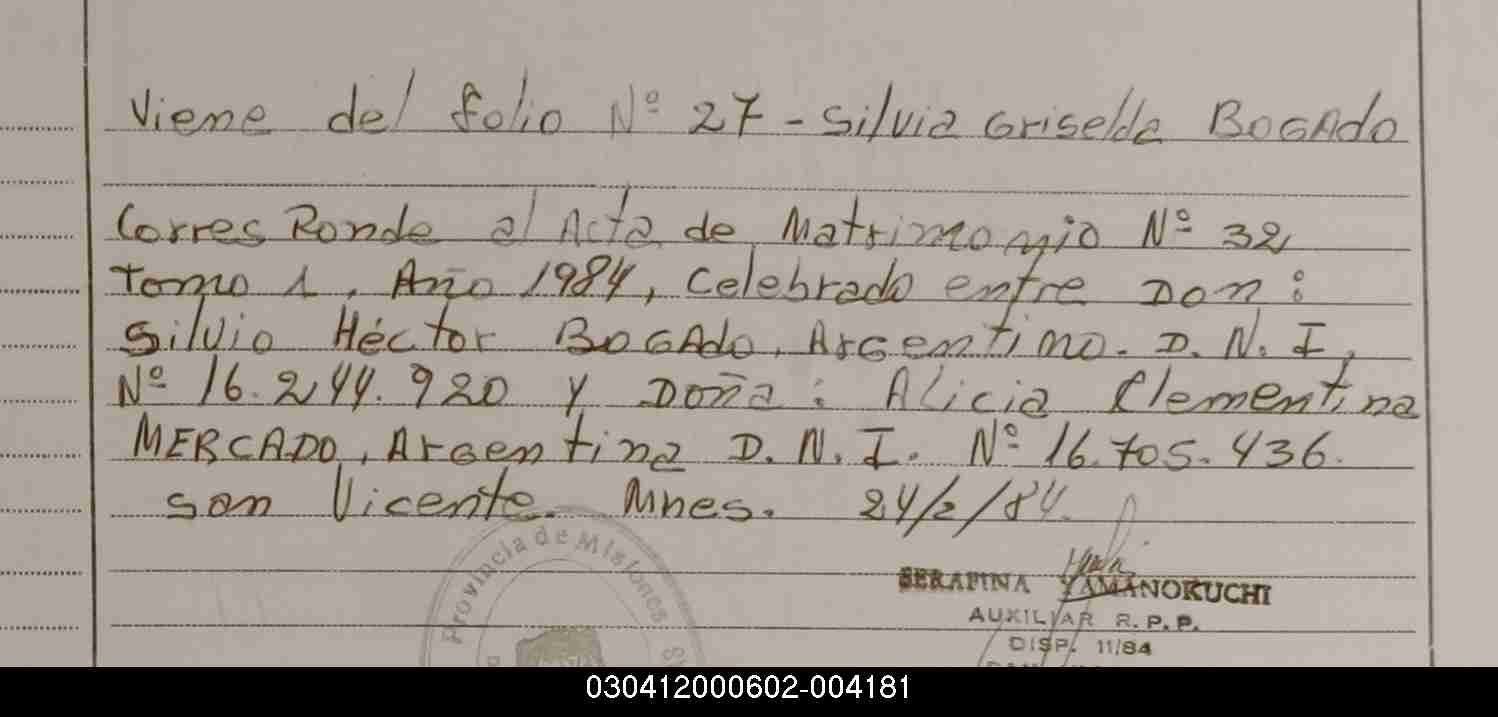 Viene del folio Nº 27 - Silvia Griselda BOGAdo
CorresPonde al Acta de Matrimonio Nº 32
Tomo 1, Año 1984, Celebrado entre Don:
Silvio Héctor BOGAdo, Argentino. D.N.I,
Nº 16.244.920 y Doña: Alicia Clementina
MERCADO, Argentina D.N.I. Nº 16.705.436.
San Vicente. Mnes. 24/2/84.
Provincia de Misiones
SERAFINA YAMANOKUCHI
AUXILIAR R.P.P.
DISP. 11/84
030412000602-004181